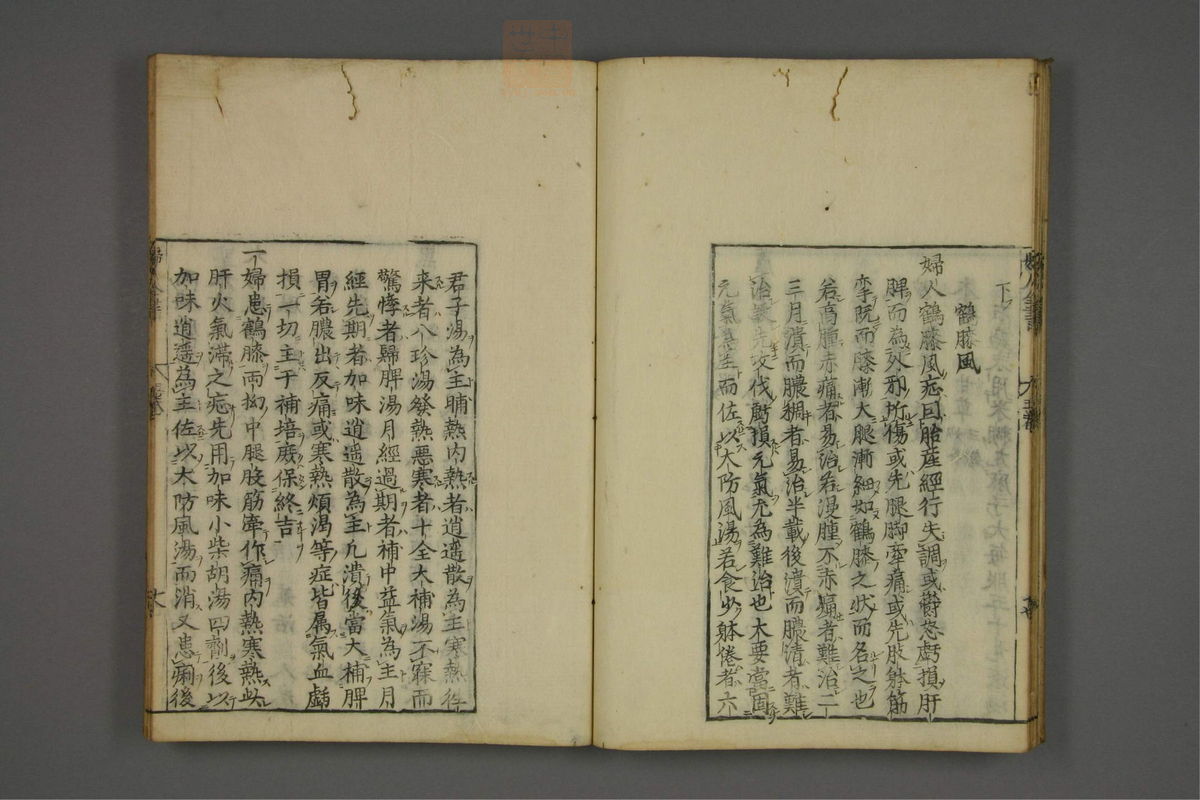 下
鶴膝風
婦人鶴膝風症因胎産經行失調或鬱怒虧損肝
脾而為外邪所傷或先腿脚牽痛或先肢體筋
攣既而膝漸大腿漸細如鶴膝之狀而名之也
若高腫赤痛者易治若漫腫不赤痛者難治二
三月潰而膿稠者易治半載後潰而膿清者難
治誤先攻伐虧損元氣尤為難治也大要當固
元氣為主而佐以大防風湯若食少躰倦者六
君子湯為主晡熱内熱者逍遥散為主寒熱徃
来者八珍湯發熱悪寒者十全大補湯不寐而
驚悸者歸脾湯月經過期者補中益氣為主月
經先期者加味逍遥散為主凢潰後當大補脾
胃若膿出反痛或寒熱煩渇等症皆属氣血虧
損一切主于補培庶保終吉
一婦患鶴膝両拗中腿股筋牽作痛内熱寒熱此
肝火氣滞之症先用加味小柴胡湯四劑後以
加味逍遥為主佐以大防風湯而消又患痢後